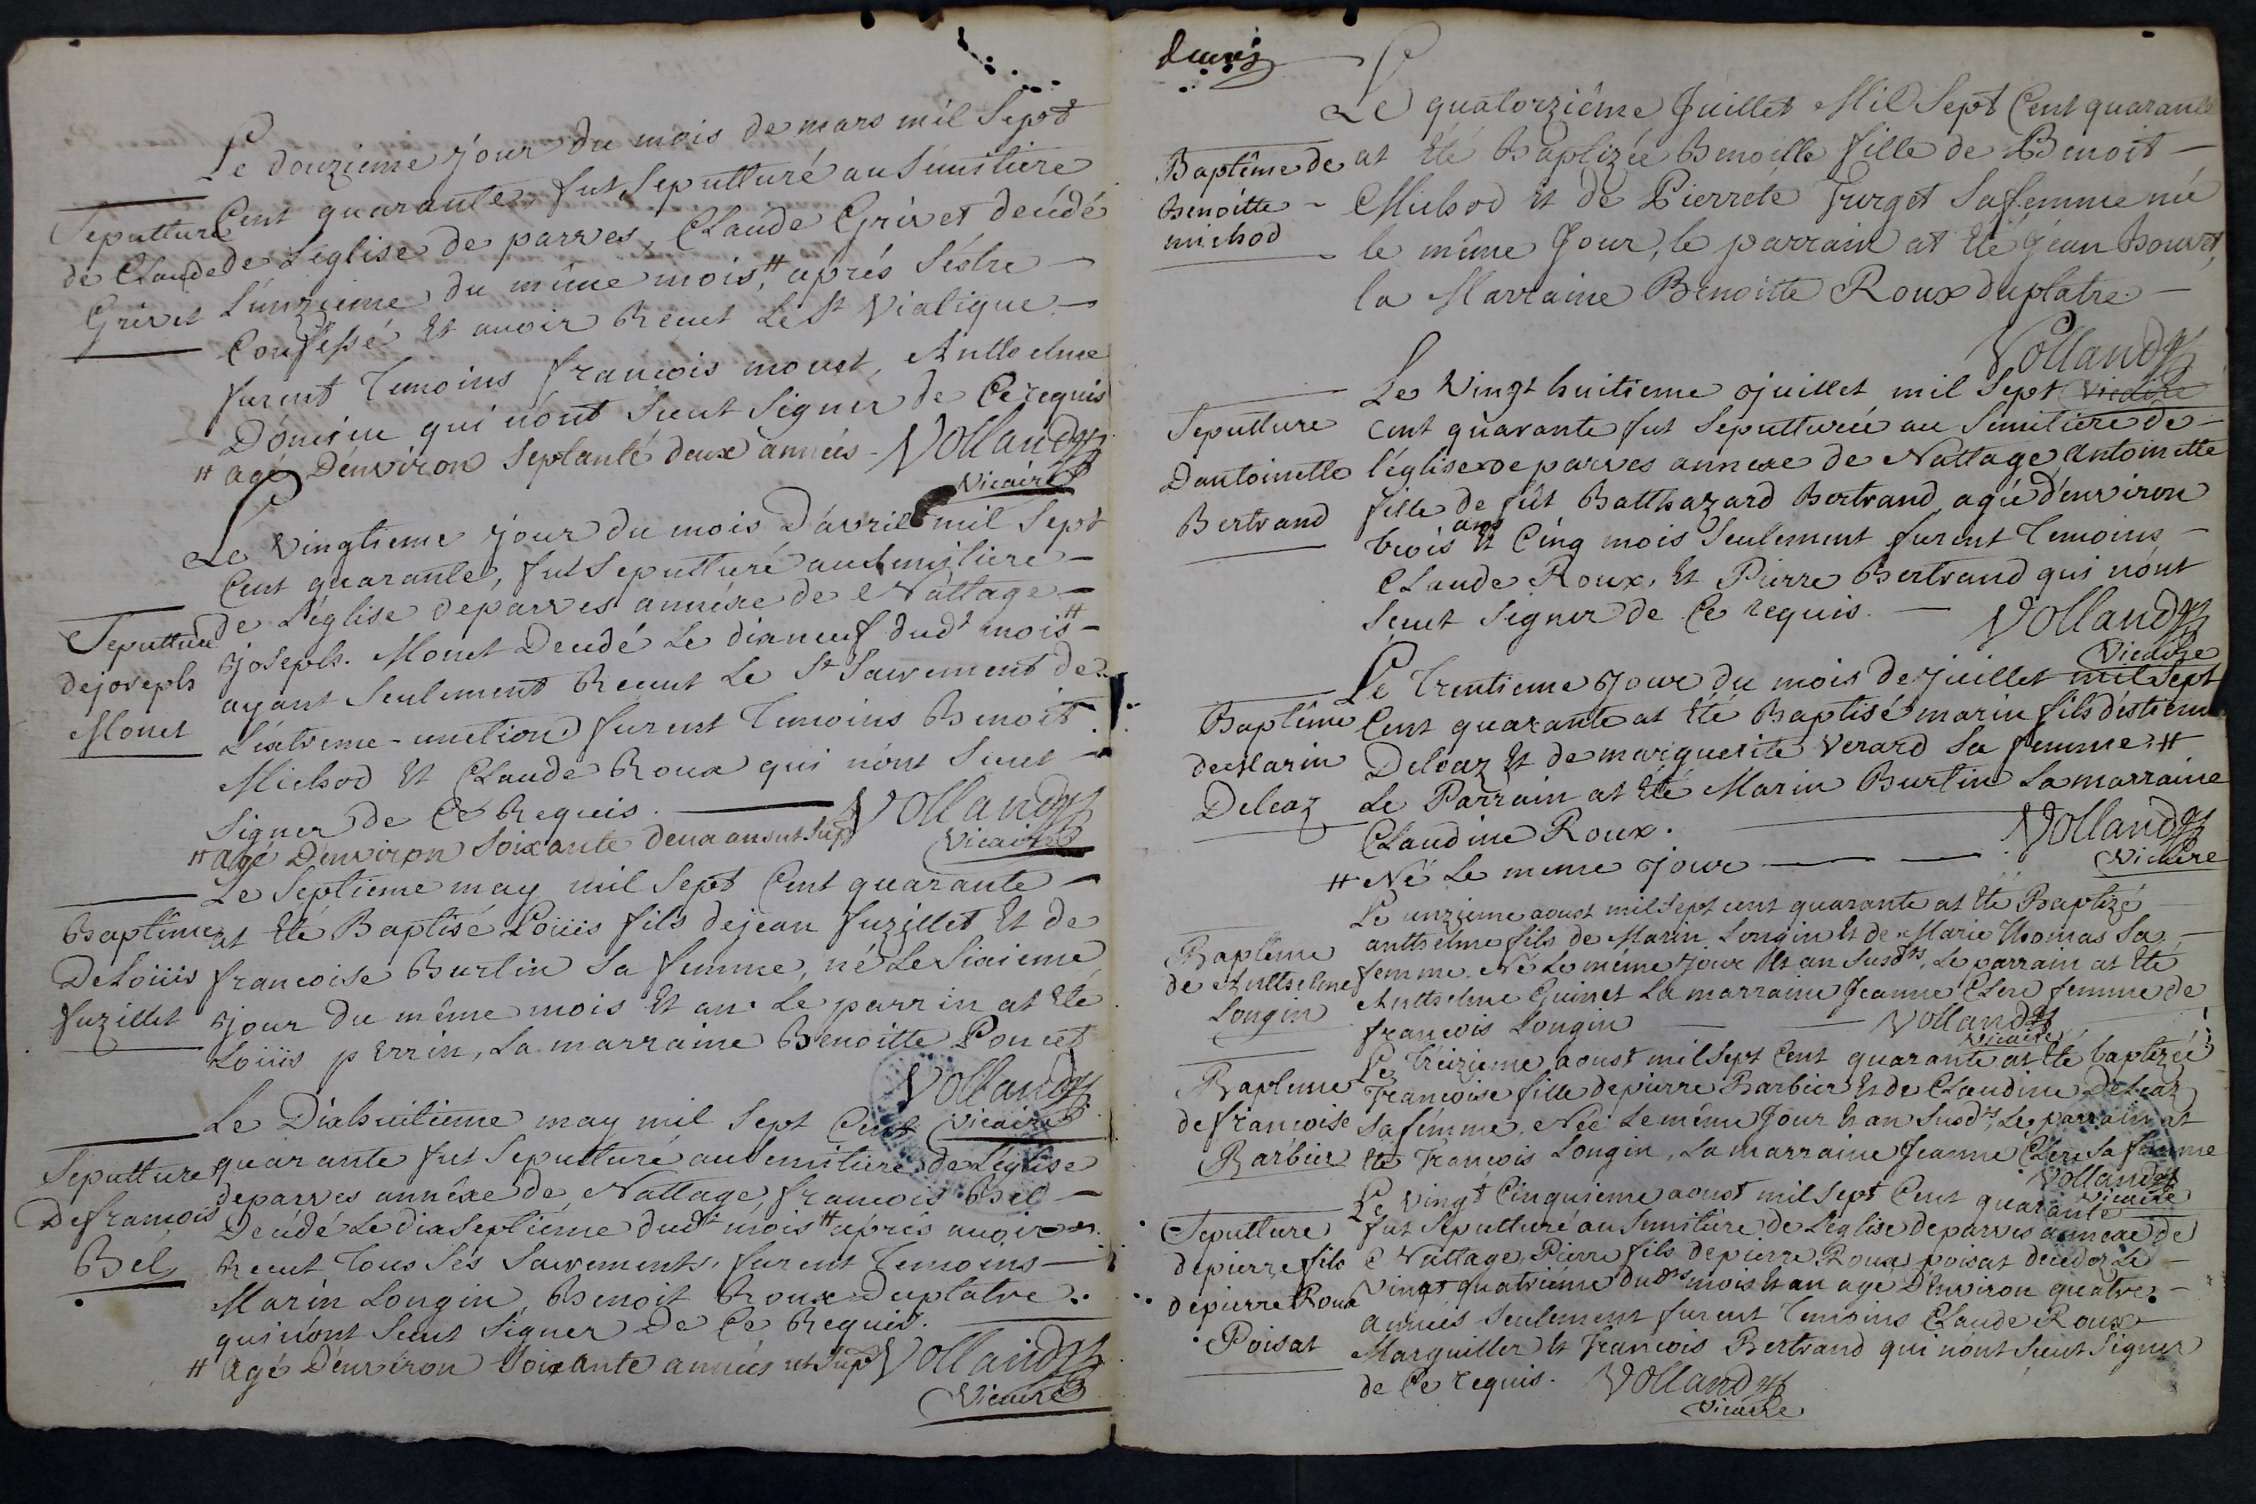 Le douzieme jour du mois de mars mil Sept
Cent quarante, fut Sepulturé au Simitiere
Sepulture
de Claude
Grivet
de L'église de parves, Claude Grivet decédé
L'unzieme du même mois # aprés S'éstre
Confessé Et avoir Receut Le St Viatique
furent Temoins francois monet, Anthelme
qui nónt Sceut Signer de Ce requis
# agé D'énviron Septanté deux années - Volland
Vicaire
Le Vingtieme jour du mois D'avril mil Sept
Cent quarante, fut Sepulturé au Simitiere
Sepulture
de joseph
Monet
de L'église de parves annéxe de Nattage
joseph Monet Decédé Le dixneuf dudt mois #
ayant Seulement Receut Le St Sacrement de
L'éxtreme-unction furent Temoins Benoit
Michod Et Claude Roux qui nónt Sceut
Signer de Ce Requis. Volland
# agé D'environ Soixante deux ans ut Sup Vicaire
Le Septieme may mil Sept Cent quarante
Baptême
De Loüis
fuzillet
at Eté Baptisé Loüis fils de jean fuzillet Et de
francoise Burtin Sa femme, né Le Sixieme
jour du même mois Et an. Le parrin at Eté
Loüis perrin, La marraine Benoitte Poncet
Volland
Vicaire
Le Dixhuitieme may mil Sept Cent
Sepulture
De francois
Bel
quarante fut Sepulturé au Semitiere de L'église
de parves annéxe de Nattage francois Bel
Decédé Le dixseptiéme dudt mois # aprés avoir
Receut Tous Ses Sacrements, furent Temoins
Marin Longin, Benoit Roux Duplatre.
qui nónt Sceut Signer De Ce Requis.
# agé D'énviron Soixante années ut Sup Volland
Vicaire
Le quatorziême Juillet Mil Sept Cent quarante
Baptême de
Benoitte
michod
at Eté Baptizée Benoitte fille de Benoit
Michod Et de Pierrete Furget Sa femme née
le même Jour, le parrain at Eté Jean Bouvet,
la Marraine Benoitte Roux duplatre
Volland
Vicaire
Le Vingt huitieme juillet mil Sept
Sepulture
Dantoinette
Bertrand
cent quarante fut Sepulturée au Simitiere de
l'église de parves annexe de Nattage Antoinette
fille de fût Balthazard Bertrand agée d'énviron
trois ans Et Cinq mois Seulement furent Temoins
Claude Roux, Et Pierre Bertrand qui nónt
Sceut Signer de Ce requis. Volland
Vicaire
Le Trentieme jour du mois de juillet mil Sept
Baptême
de Marin
Deleaz
Cent quarante at Eté Baptisé marin fils d'éstienne
Deleaz Et de marguerite Verard Sa femme #
Le Parrain at Eté Marin Burtin La marraine
Claudine Roux. Volland
# Né Le meme jour Vicaire
Le unzieme aoust mil Sept cent quarante at Eté Baptizé
Baptême
de Anthelme
Longin
anthelme fils de Marin Longin Et de Marie Thomas Sa
femme Né Le même Jour Et an Susdts, Le parrain at Eté
Anthelme Guinet La marraine Jeanne Clere femme de
francois Longin Volland
Vicaire
Le Treizieme aoust mil Sept Cent quarante at Eté baptizée
Bapteme
de francoise
Barbier
francoise fille de pierre Barbier Et de Claudine Deleaz
Sa fémme. Née Le même Jour Et an Susdts, Le parrain at
Eté Francois Longin, La marraine Jeanne Clere Sa femme
Volland
Vicaire
Le Vingt Cinquieme aoust mil Sept Cent quarante
Sepulture
de pierre fils
de pierre Roux
Poisat
fut Sepulturé au Simitiere de L'église de parves annexe de
Nattage Pierre fils de pierre Roux poisat decedez Le
Vingt quatriéme dudts mois Et an age D'énviron quatre
années Seulement furent Temoins Claude Roux
Marguiller Et Francois Bertrand qui nónt Sceut Signer
de Ce requis. Volland
Vicaire